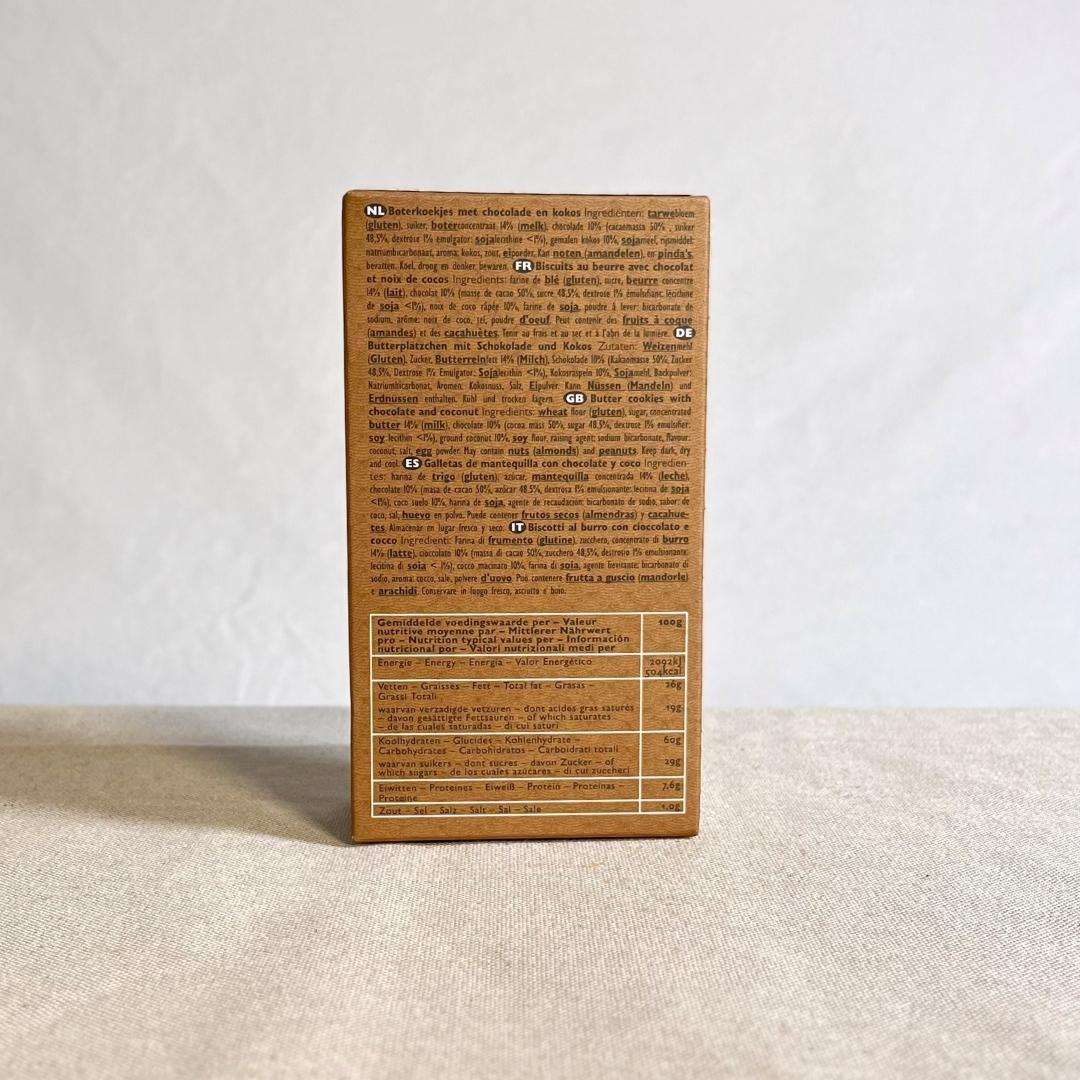 NL Boterkoekjes met chocolade en kokos Ingrediënten: tarwebloem
(gluten), suiker, boterconcentraat 14% (melk), chocolade 10% (cacaomassa 50%, suiker
48,5%, dextrose 1% emulgator: sojalecithine <1%), gemalen kokos 10%, sojameel, rijsmiddel:
natriumbicarbonaat, aroma: kokos, zout, eipoeder. Kan noten (amandelen), en pinda's
bevatten. Koel, droog en donker, bewaren. FR Biscuits au beurre avec chocolat
et noix de cocos Ingredients: farine de blé (gluten), sucre, beurre concentre
14% (lait), chocolat 10% (masse de cacao 50%, sucre 48,5%, dextrose 1% émulsifiant: lecitine
de soja <1%), noix de coco râpée 10%, farine de soja, poudre à lever: bicarbonate de
sodium, arôme: noix de coco, sel, poudre d'oeuf. Peut contenir des fruits à coque
(amandes) et des cacahuètes. Tenir au frais et au sec et à l'abri de la lumière. DE
Butterplätzchen mit Schokolade und Kokos Zutaten: Weizenmehl
(Gluten), Zucker, Butterreinfett 14% (Milch), Schokolade 10% (Kakaomasse 50%, Zucker
48,5%, Dextrose 1% Emulgator: Sojalecithin <1%), Kokosraspeln 10%, Sojamehl, Backpulver:
Natriumbicarbonat, Aromen: Kokosnuss, Salz, Eipulver. Kann Nüssen (Mandeln) und
Erdnüssen enthalten. Kühl und trocken lagern. GB Butter cookies with
chocolate and coconut Ingredients: wheat flour (gluten), sugar, concentrated
butter 14% (milk), chocolate 10% (cocoa mass 50%, sugar 48,5%, dextrose 1% emulsifier:
soy lecithin <1%), ground coconut 10%, soy flour, raising agent: sodium bicarbonate, flavour:
coconut, salt, egg powder. May contain nuts (almonds) and peanuts. Keep dark, dry
and cool. ES Galletas de mantequilla con chocolate y coco Ingredien-
tes: harina de trigo (gluten), azúcar, mantequilla concentrada 14% (leche),
chocolate 10% (masa de cacao 50%, azúcar 48,5%, dextrosa 1% emulsionante: lecitina de soja
<1%), coco suelo 10%, harina de soja, agente de recaudación: bicarbonato de sodio, sabor: de
coco, sal, huevo en polvo. Puede contener frutos secos (almendras) y cacahue-
tes. Almacenar en lugar fresco y seco. IT Biscotti al burro con cioccolato e
cocco Ingredienti: Farina di frumento (glutine), zucchero, concentrato di burro
14% (latte), cioccolato 10% (massa di cacao 50%, zucchero 48,5%, destrosio 1% emulsionante:
lecitina di soia < 1%), cocco macinato 10%, farina di soia, agente lievitante: bicarbonato di
sodio, aroma: cocco, sale, polvere d'uovo. Può contenere frutta a guscio (mandorle)
e arachidi. Conservare in luogo fresco, asciutto e buio.
Gemiddelde voedingswaarde per – Valeur 100g
nutritive moyenne par – Mittlerer Nährwert
pro – Nutrition typical values per – Información
nutricional por – Valori nutrizionali medi per
Energie – Energy – Energía – Valor Energético 2092kJ
504kcal
Vetten – Graisses – Fett – Total fat – Grasas – 26g
Grassi Totali
waarvan verzadigde vetzuren – dont acides gras saturés 19g
– davon gesättigte Fettsäuren – of which saturates
– de las cuales saturadas – di cui saturi
Koolhydraten – Glucides – Kohlenhydrate – 60g
Carbohydrates – Carbohidratos – Carboidrati totali
waarvan suikers – dont sucres – davon Zucker – of 29g
which sugars – de los cuales azúcares – di cui zuccheri
Eiwitten – Proteines – Eiweiß – Protein – Proteínas – 7,6g
Proteine
Zout – Sel – Salz – Salt – Sal – Sale 1,0g